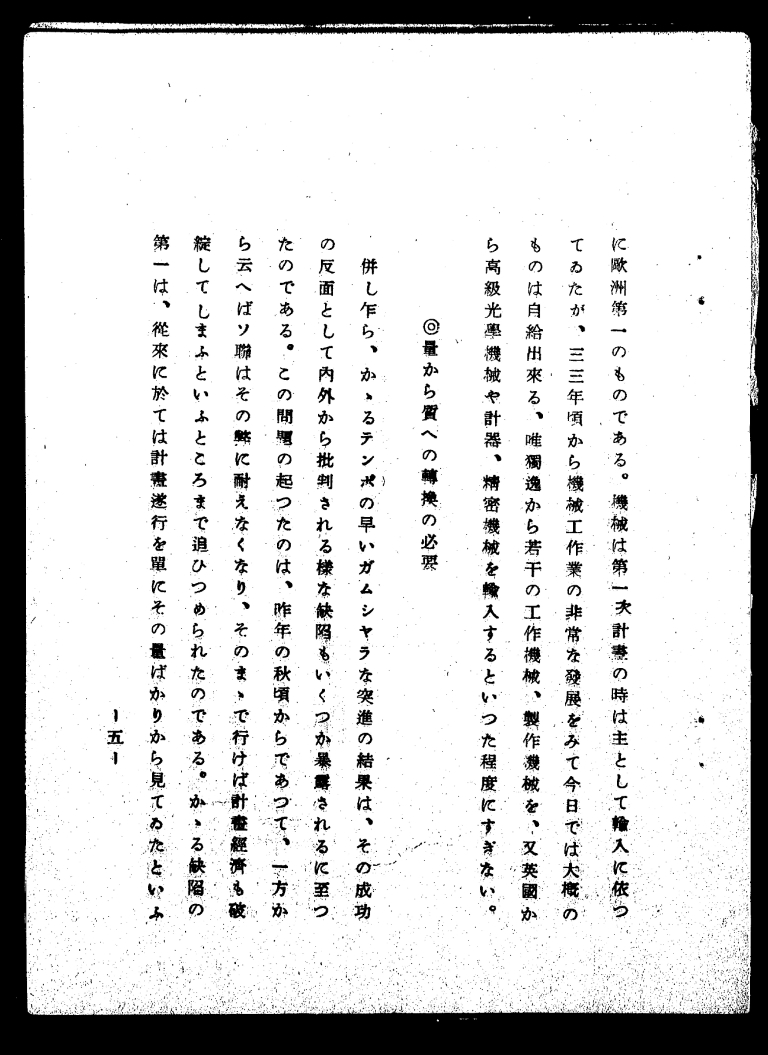 に歐洲第一のものである。機械は第一次計畫の時は主として輸入に依つ
てゐたが、三三年頃から機械工作業の非常な發展をみて今日では大概の
ものは自給出來る、唯獨逸から若干の工作機械、製作機械を、又英國か
ら高級光學機械や計器、精密機械を輸入するといつた程度にすぎない。
◎量から質への轉換の必要
併し乍ら、かゝるテンポの早いガムシヤラな突進の結果は、その成功
の反面として内外から批判される樣な缺陷もいくつか暴露されるに至つ
たのである。この問題の起つたのは、昨年の秋頃からであつて、一方か
ら云へばソ聯はその弊に耐えなくなり、そのまゝで行けば計畫經濟も破
綻してしまふといふところまで追ひつめられたのである。かゝる缺陷の
第一は、從來に於ては計畫遂行を單にその量ばかりから見てゐたといふ
ー五ー